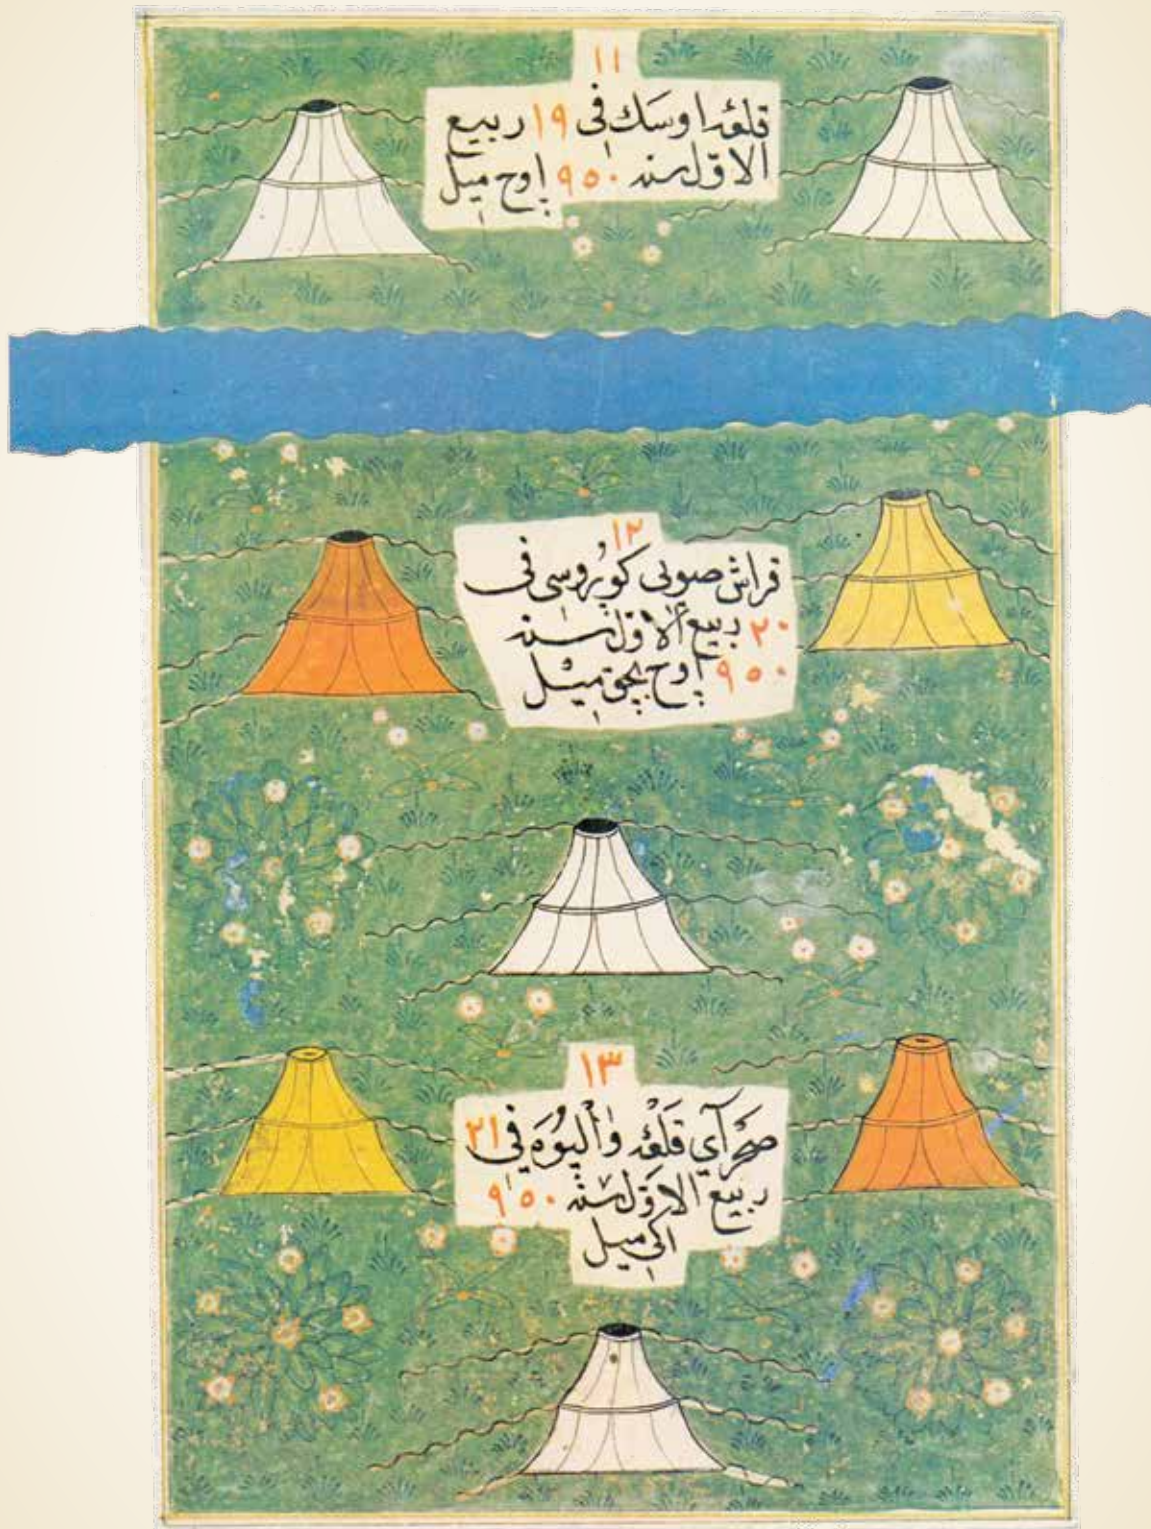 ١١
قلعۀ اوسك فى ١٩ ربيع
الاوّل سنه ٩٥٠ اوچ ميل
١٢
قراش صويى كوپروسى فى
٢٠ ربيع الاوّل سنه
٩٥٠ اوچ بچق ميل
١٣
صحرآي قلعۀ والپوه في ٢١
ربيع الاوّل سنه ٩٥٠
اكى ميل